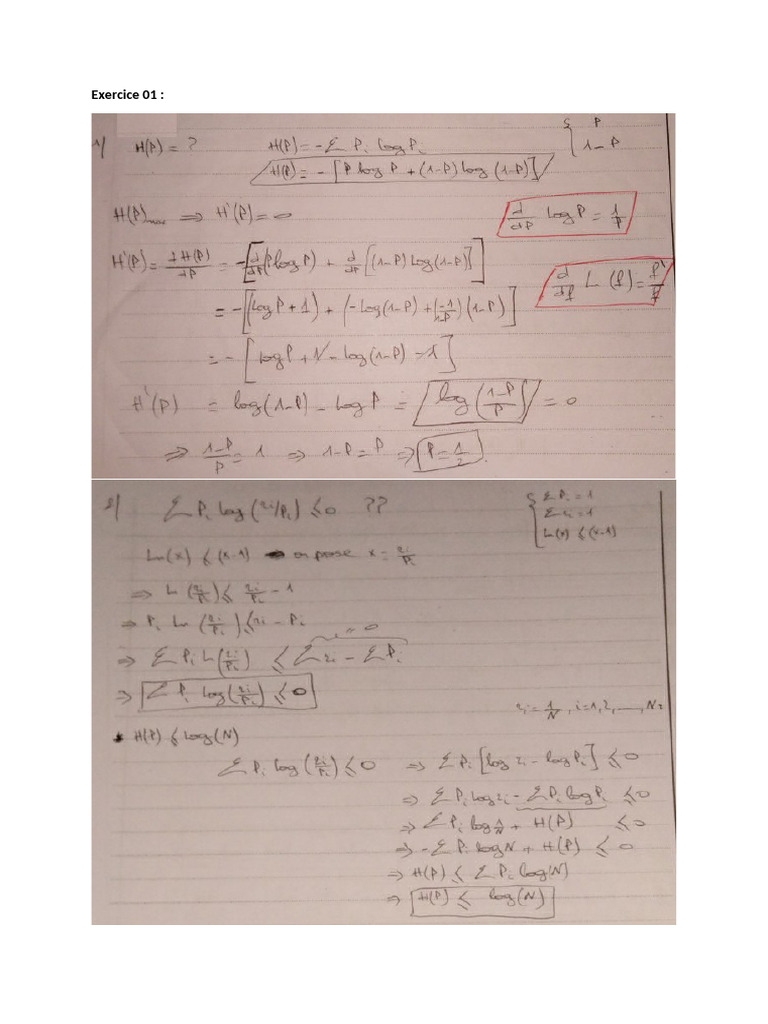 Exercice 01 :
1/ H(P) = ? H(P) = -Σ Pi log Pi { P
H(P) = -[P log P + (1-P) log (1-P)] 1-P
H(P)max ⇒ H'(P) = 0 d/dP log P = 1/P
H'(P) = dH(P)/dP = -[d/dP (P log P) + d/dP [(1-P) log (1-P)]]
d/df L (f) = f'/f
= -[(log P + 1) + (-log (1-P) + (-1/1-P) (1-P)]
= -[log P + 1 - log (1-P) - 1]
H'(P) = log (1-P) - log P = log (1-P/P) = 0
⇒ 1-P/P = 1 ⇒ 1-P = P ⇒ P = 1/2.
2/ Σ Pi log (qi/Pi) ≤ 0 ?? { Σ Pi = 1
Σ qi = 1
Ln(x) ≤ (x-1)
Ln(x) ≤ (x-1) on pose x = qi/Pi
⇒ Ln (qi/Pi) ≤ qi/Pi - 1
⇒ Pi Ln (qi/Pi) ≤ qi - Pi
= 0
⇒ Σ Pi Ln (qi/Pi) ≤ Σ qi - Σ Pi
⇒ Σ Pi log (qi/Pi) ≤ 0
qi = 1/N , i = 1, 2, ....., N
* H(P) ≤ log (N)
Σ Pi log (qi/Pi) ≤ 0 ⇒ Σ Pi [log qi - log Pi] ≤ 0
⇒ Σ Pi log qi - Σ Pi log Pi ≤ 0
⇒ Σ Pi log 1/N + H(P) ≤ 0
⇒ -Σ Pi log N + H(P) ≤ 0
⇒ H(P) ≤ Σ Pi log (N)
⇒ H(P) ≤ log (N)